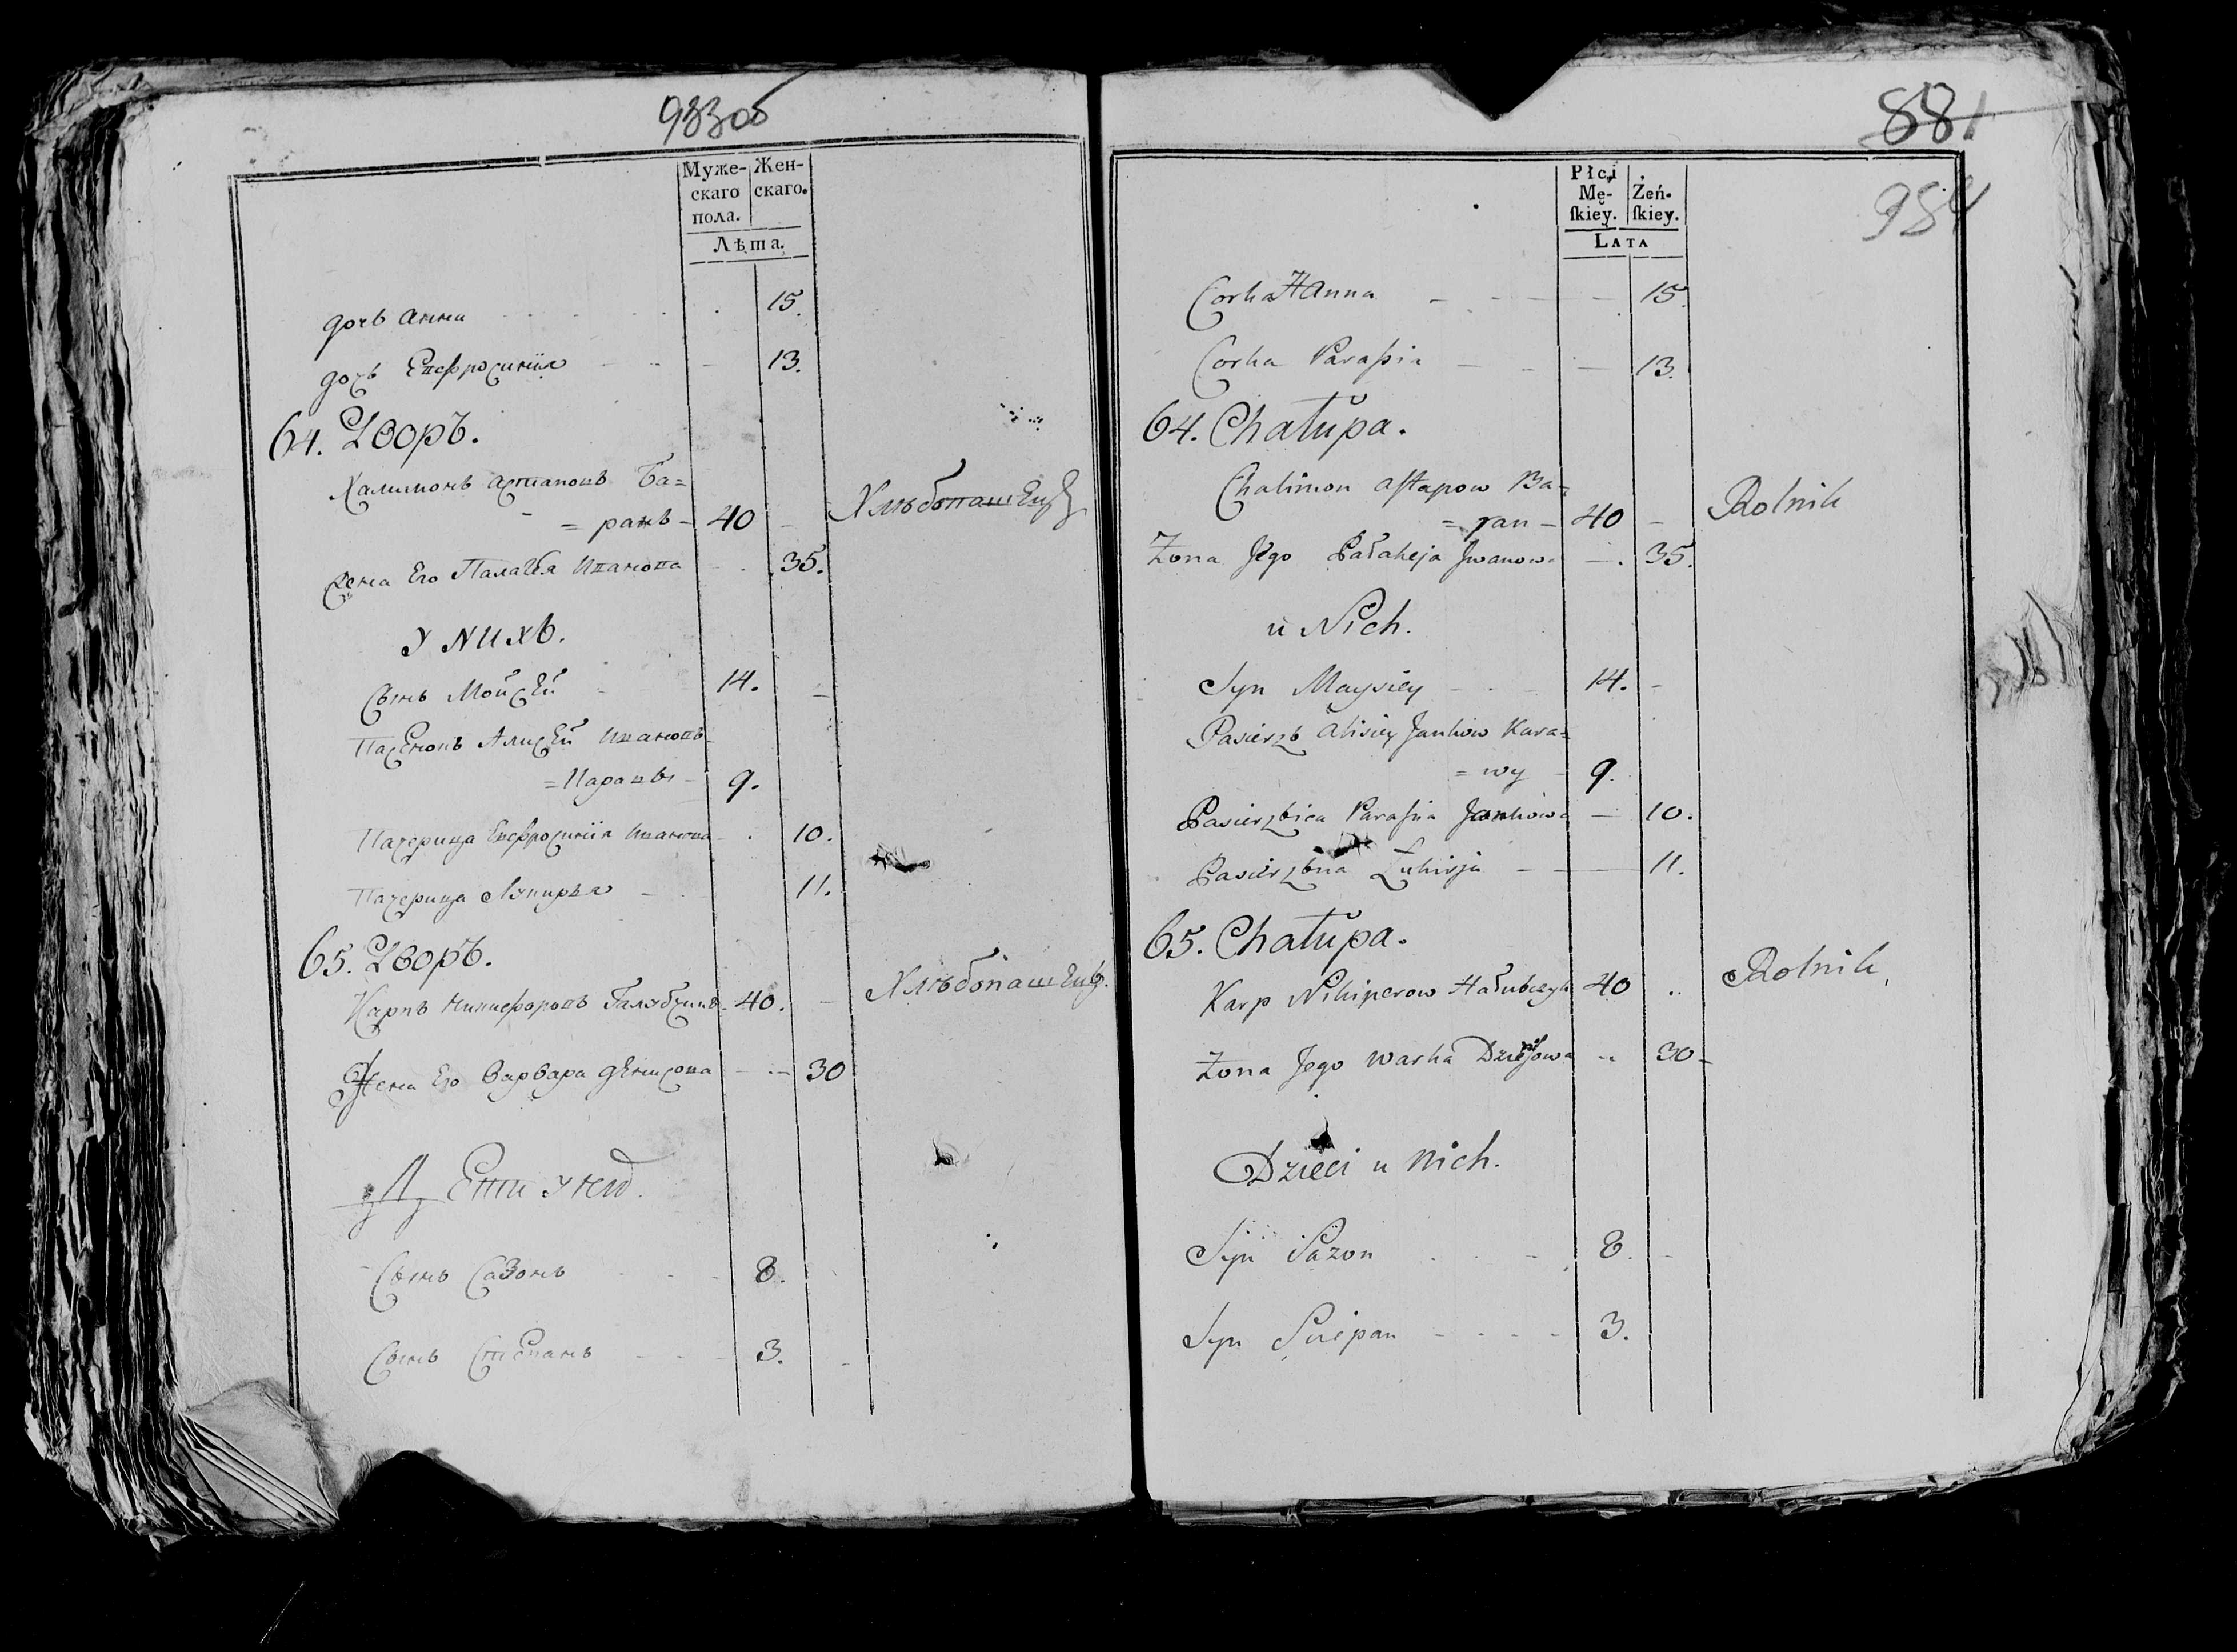 933об
Муже-
скаго
пола.
Жен-
скаго.
Лѣта.
дочь Анна 15.
дочь Евфросинія 13.
64. Дворъ.
Халимонъ Астаповъ Ба=
=ранъ 40 Хлѣбопашецъ
Жена Его Палагѣя Иванова 35.
У нихъ.
Сынъ Мойсей 14.
Пасенокъ Алисей Ивановъ
=Каравы 9.
Пачерица Евфросинія Иванова 10.
Пачерица Лукирья 11.
65. Дворъ.
Карпъ Никифоровъ Галубчикъ 40. Хлѣбопашецъ.
Жена Его Варвара Денисова 30
Дѣти у нихъ.
Сынъ Сазонъ 8.
Сынъ Степанъ 3.
881
934
Płci
Mę-
ſkiey.
Żeń-
ſkiey.
LATA
Corka Hanna 15.
Corka Paraſia 13.
64. Chałupa.
Chalimon Aſtapow Ba=
=ran 40 Rolnik
Zona Jego Pałaheja Jwanowa 35.
u Nich.
Syn Maysiey 14.
Pasierzb Alisiey Jankow Kara=
=wy 9.
Pasierzbica Paraſia Jankowa 10.
Pasierzbica Łukirja 11.
65. Chałupa.
Karp Nikiperow Hałubczyk 40 Rolnik
Zona Jego Warka 30
Dzieci u nich.
Syn Sazon 8.
Syn Sciepan 3.